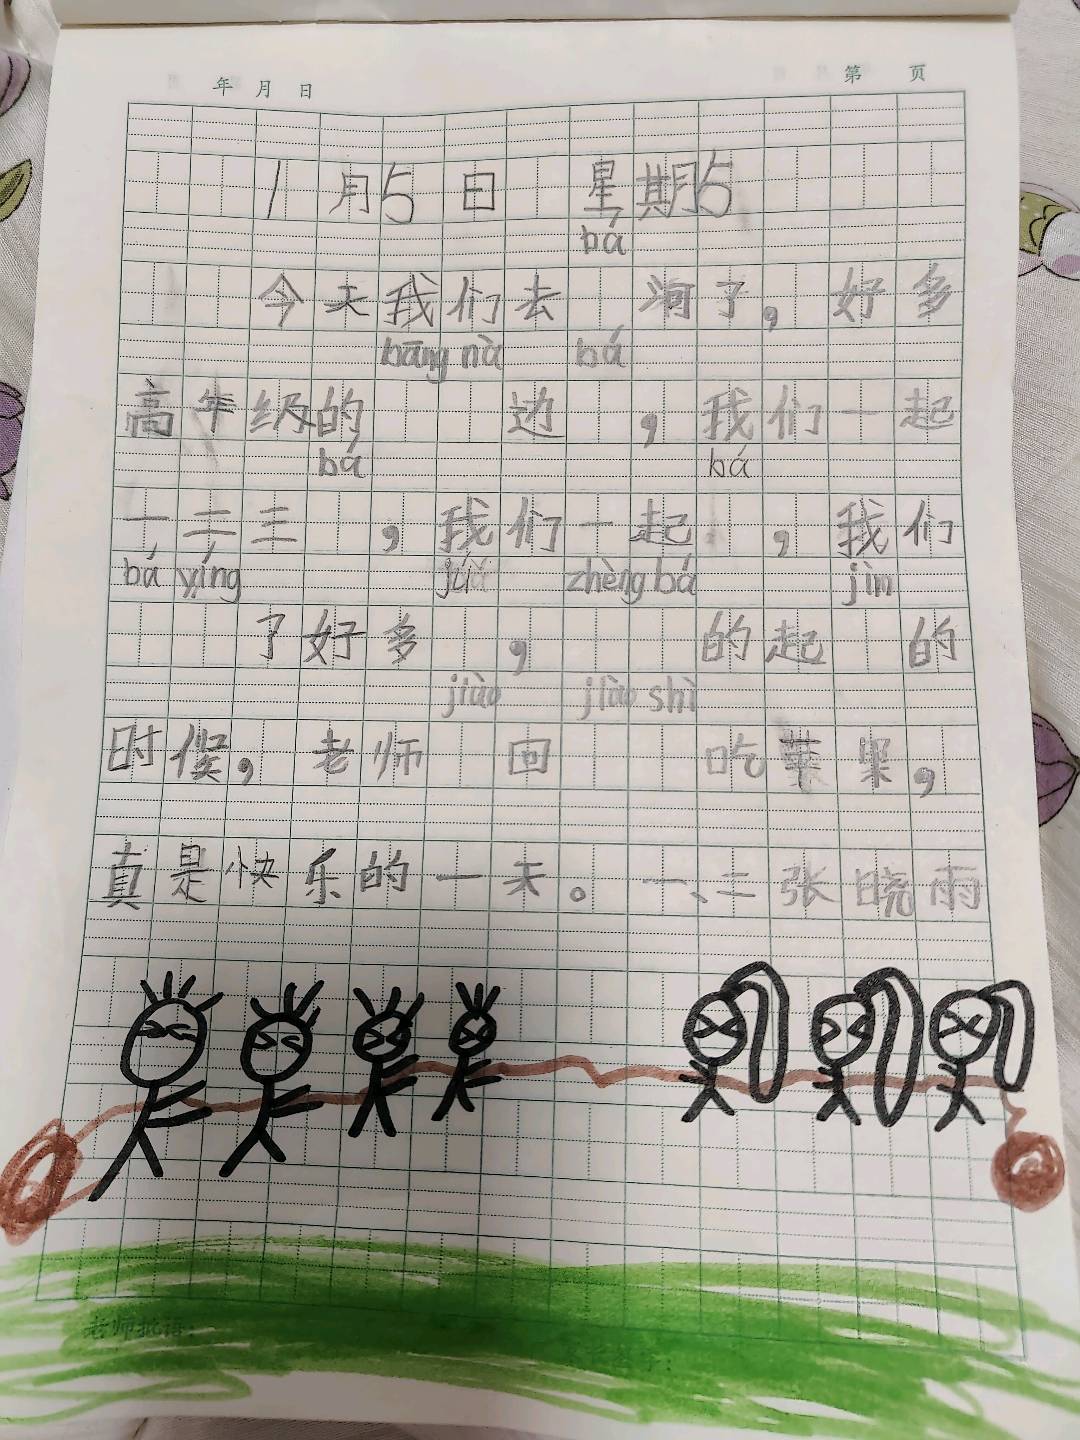 年 月 日 第 页
1月5日 星期5
bá
今天我们去 河了，好多
bāng nà bá
高年级的 边 ，我们一起
bá bá
一二三 ，我们一起 ，我们
bá yíng júi zhèng bá jìn
了好多 ， 的起 的
jiào jiào shì
时候，老师 回 吃苹果，
真是快乐的一天。 一、二张晓雨
老师批语：